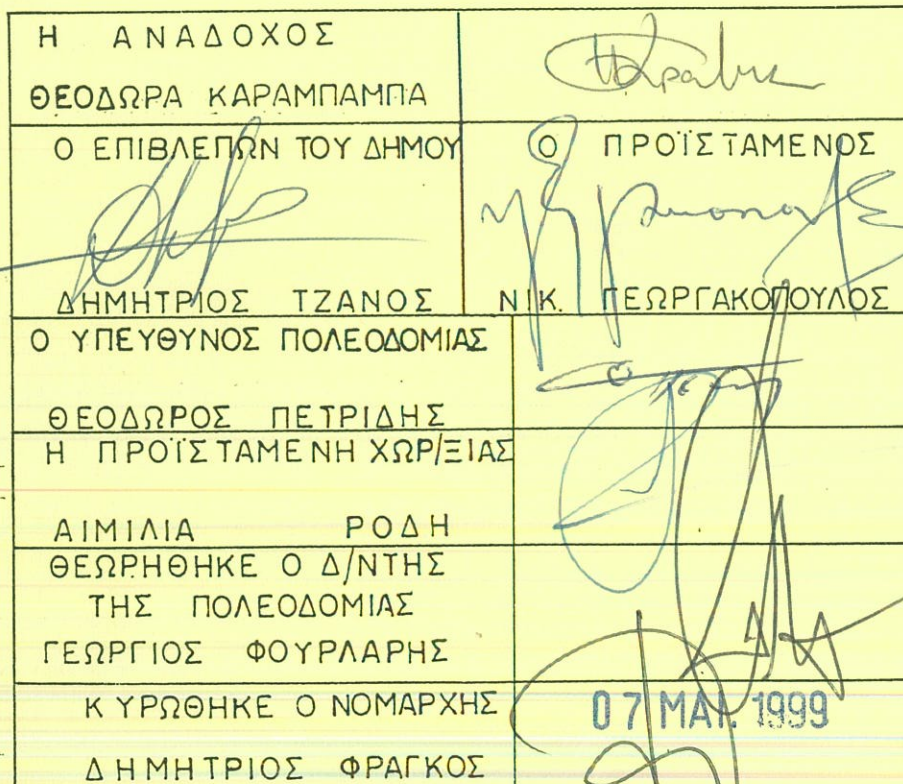 Η ΑΝΑΔΟΧΟΣ
ΘΕΟΔΩΡΑ ΚΑΡΑΜΠΑΜΠΑ
Ο ΕΠΙΒΛΕΠΩΝ ΤΟΥ ΔΗΜΟΥ
ΔΗΜΗΤΡΙΟΣ ΤΖΑΝΟΣ
Ο ΠΡΟΪΣΤΑΜΕΝΟΣ
ΝΙΚ. ΓΕΩΡΓΑΚΟΠΟΥΛΟΣ
Ο ΥΠΕΥΘΥΝΟΣ ΠΟΛΕΟΔΟΜΙΑΣ
ΘΕΟΔΩΡΟΣ ΠΕΤΡΙΔΗΣ
Η ΠΡΟΪΣΤΑΜΕΝΗ ΧΩΡ/ΞΙΑΣ
ΑΙΜΙΛΙΑ ΡΟΔΗ
ΘΕΩΡΗΘΗΚΕ Ο Δ/ΝΤΗΣ
ΤΗΣ ΠΟΛΕΟΔΟΜΙΑΣ
ΓΕΩΡΓΙΟΣ ΦΟΥΡΛΑΡΗΣ
ΚΥΡΩΘΗΚΕ Ο ΝΟΜΑΡΧΗΣ
07 ΜΑΪ. 1999
ΔΗΜΗΤΡΙΟΣ ΦΡΑΓΚΟΣ